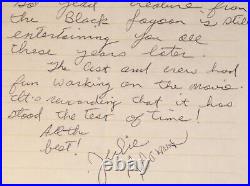 So glad creature from
the Black Lagoon is still
entertaining you all
these years later.
The cast and crew had
fun working on the movie
It's rewarding that it has
stood the test of time!
All the
best!
Julie
Adams